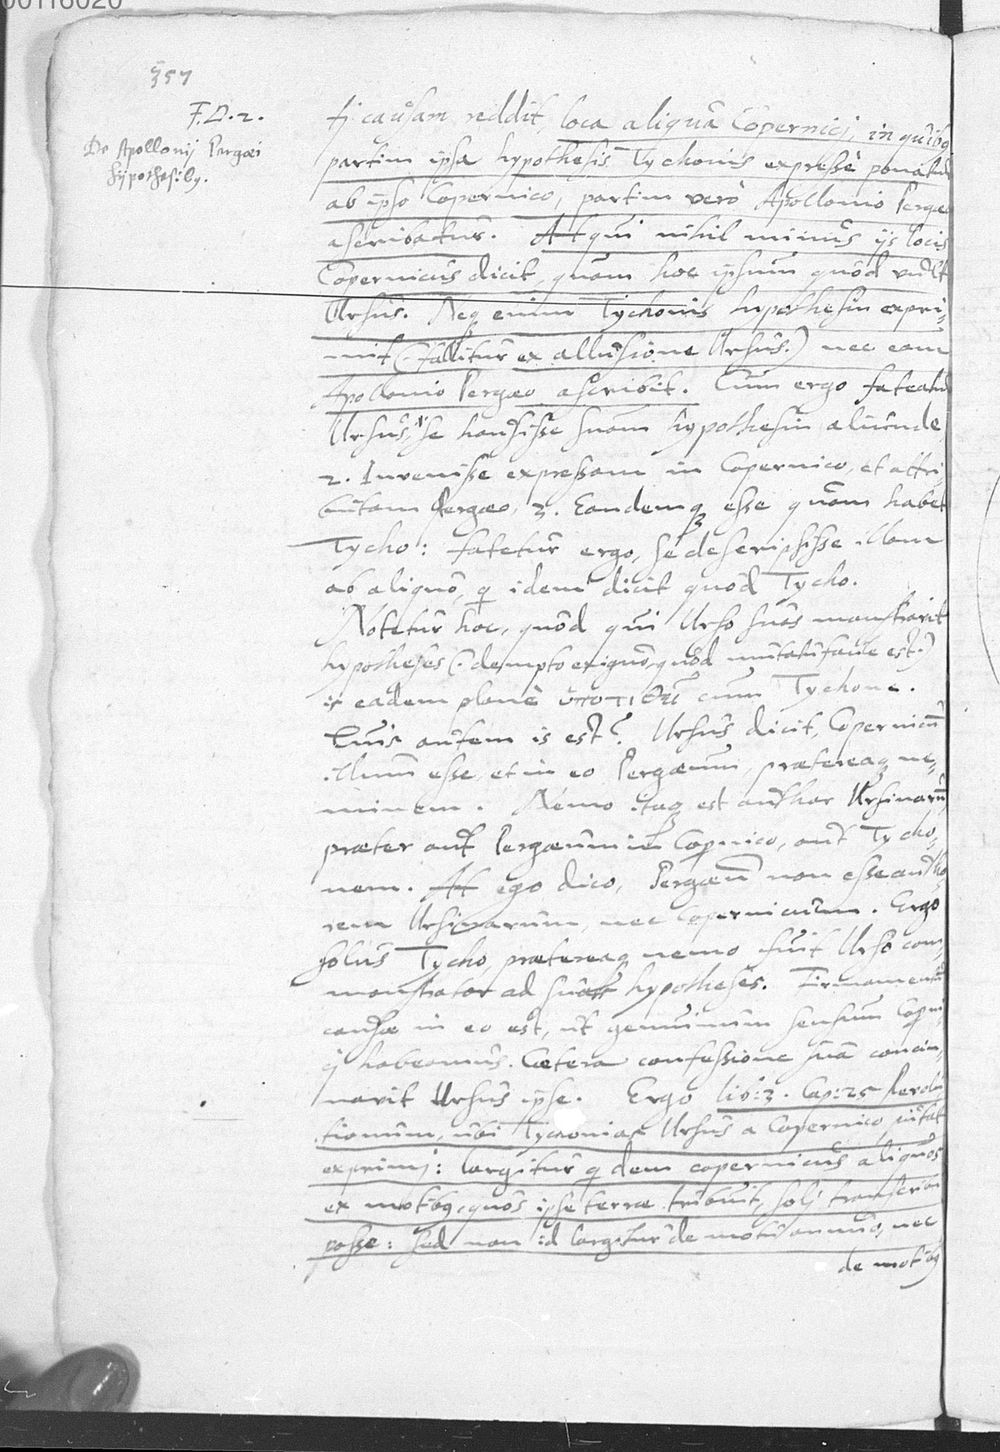 357
F.D.2.
De Apollonij Pergæi
hypothesib9.
causam reddit, loca aliqua Copernici, in quib9
partim ipsa hypothesis Tychonis expressè ponatur
ab ipso Copernico, partim verò Apollonio Pergæo
ascribatur. Atqui nihil minus ijs locis
Copernicus dicit, quam hoc ipsum quod vult
Ursus. Neq enim Tychonis hypothesin expri-
mit (fallitur ex allusione Ursus.) nec eam
Apollonio Pergæo ascribit. Cum ergo fateatur
Ursus, 1. se hausisse suam hypothesin aliunde,
2. Invenisse expressam in Copernico, et attri-
butam Pergæo, 3. Eandemq esse quam habet
Tycho: fatetur ergo, se descripsisse illam
ab aliquo, q idem dicit quod Tycho.
Notetur hoc, quod qui Urso suas monstravit
hypotheses (dempto exiguo, quod mutatu facile est.)
is eadem planè cum Tychone.
Quis autem is est? Ursus dicit, Copernicū
illum esse, et in eo Pergæum, prætereaq ne-
minem. Nemo itaq est author Ursinarū,
præter aut Pergæum in Copnico, aut Tycho-
nem. At ego dico, Pergæū non esse autho-
rem Ursinarum, nec Copernicum. Ergo
solus Tycho, prætereaq nemo fuit Urso com-
monstrator ad suas hypotheses. Firmamentū
causæ in eo est, ut genuinum sensum Copni-
cj habeamus. Cætera confessione sua concin-
navit Ursus ipse. Ergo lib: 3. Cap: 25 Revolu-
tionum, ubi Tychonias Ursus a Copernico putat
exprimj: largitur q dem copernicus aliquos
ex motib9, quos ipse terræ tribuit, solj transcribi
posse: sed non id largitur de motu annuo, nec
de motib9